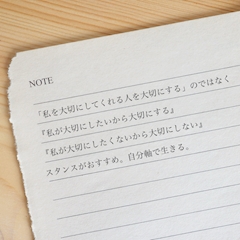 NOTE
「私を大切にしてくれる人を大切にする」のではなく
『私が大切にしたいから大切にする』
『私が大切にしたくないから大切にしない』
スタンスがおすすめ。自分軸で生きる。